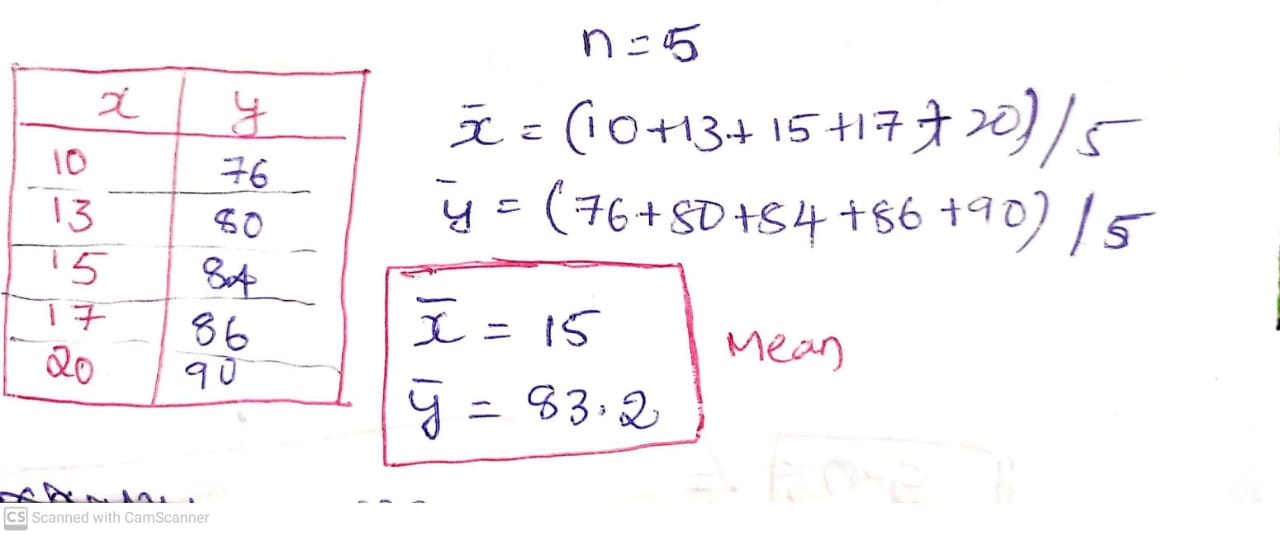 n = 5
x y
10 76
13 80
15 84
17 86
20 90
x̄ = (10+13+15+17+20)/5
ȳ = (76+80+84+86+90)/5
x̄ = 15
ȳ = 83.2
Mean
CS Scanned with CamScanner